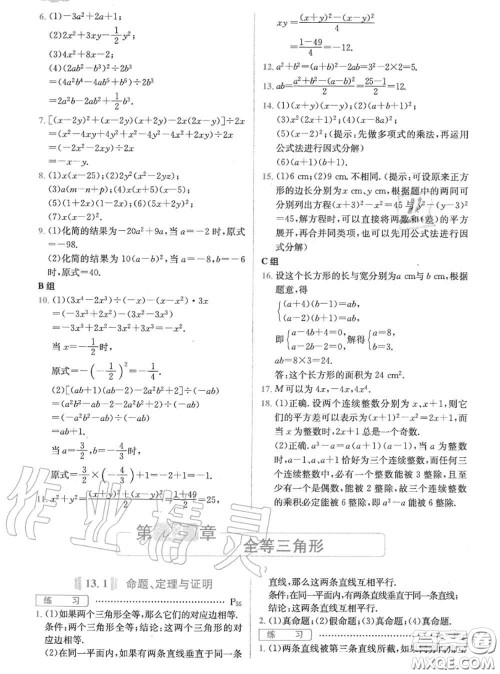 6. (1)-3a²+2a+1.
(2)2x²+3xy-1/2 y².
(3)4x²+8x-2;
(4)(2ab²-b³)²÷2b³
=(4a²b⁴-4ab⁵+b⁶)÷2b³
=2a²b-2ab²+1/2 b³.
7. [(x-2y)²+(x-2y)(x+2y)-2x(2x-y)]÷2x
=(x²-4xy+4y²+x²-4y²-4x²+2xy)÷2x
=(-2x²-2xy)÷2x
=-x-y.
8. (1)x(25x-1);(2)x²(x²-2yz);
(3)a(m-n+p);(4)x(x+5)(x-5);
(5)(1+2x)(1-2x);(6)(x-2)²;
(7)-x(x-2)².
9. (1)化简的结果为-20a²+9a,当a=-2时,原式
=-98.
(2)化简的结果为10(a-b)²,当a=-1,b=-3
时,原式=40.
B组
10. (1)(3x⁴-2x³)÷(-x)-(x-x²)·3x
=(-3x³+2x²)-(3x²-3x³)
=-3x³+2x²-3x²+3x³=-x².
当x=-1/2时,
原式=-(-1/2)²=-1/4.
(2)[(ab+1)(ab-2)-2a²b²+2]÷(-ab)
=(a²b²-ab-2-2a²b²+2)÷(-ab)
=(-a²b²-ab)÷(-ab)
=ab+1.
当a=3/2,b=-4/3时,
原式=3/2×(-4/3)+1=-1.
11. x²+y²=((x+y)²+(x-y)²)/2=(1+49)/2=25,
xy=((x+y)²-(x-y)²)/4
=(1-49)/4=-12.
12. a²+b²=(a-b)²+2ab=3²-2×2=5.
13. ab=(a²+b²-(a-b)²)/2=(25-1)/2=12.
14. (1)(x+y)(x-y);(2)(a+b+1)²;
(3)x²(2x-1)²;(4)(x-6)²;
(5)(x-2)²(提示:先做多项式的乘法,再运用
公式法进行因式分解)
(6)(a+b)(b+1).
15. (1)6 cm;(2)9 cm,不相同.(提示:可设原来正方
形的边长分别为x cm,y cm,根据题中的两问可
分别列出方程(x+3)²-x²=45与y²-(y-3)²
=45,解方程时,可以直接将两数和(差)的平方
展开,再合并同类项,也可以先用公式法进行因
式分解)
C组
16. 设这个长方形的长与宽分别为a cm与b cm,根据
题意,得
{(a+4)(b-1)=ab,
(a-2)(b+1)=ab.
即{a-4b+4=0,
a-2b-2=0;解得{a=8,
b=3.
ab=8×3=24.
答:这个长方形的面积为24 cm².
17. M可以为4x,-4x,4x⁴.
18. (1)正确.设两个连续整数分别为x,x+1,则它
们的平方差可以表示为(x+1)²-x²=2x+1,而
当x为整数时,2x+1总是一个奇数.
(2)正确.a³-a=a(a+1)(a-1),当a为整数
时,a-1,a,a+1恰好为三个连续整数,而任何三
个连续整数中,必有一个能被3整除,且至
少有一个是偶数,能被2整除,故三个连续整数
的乘积必定能被6整除,即a³-a能被6整除.
第 章 全等三角形
13.1 命题、定理与证明
练习 P55
1. (1)如果两个三角形全等,那么它们的对应边相等.
条件:两个三角形全等;结论:这两个三角形的对
应边相等.
(2)在同一平面内,如果有两条直线垂直于同一条
直线,那么这两条直线互相平行.
条件:在同一平面内,有两条直线垂直于同一条直
线;结论:这两条直线互相平行.
2. (1)真命题;(2)假命题;(3)假命题;(4)真命题.
练习
1. (1)两条直线被第三条直线所截,如
作业精灵
MXQE.COM